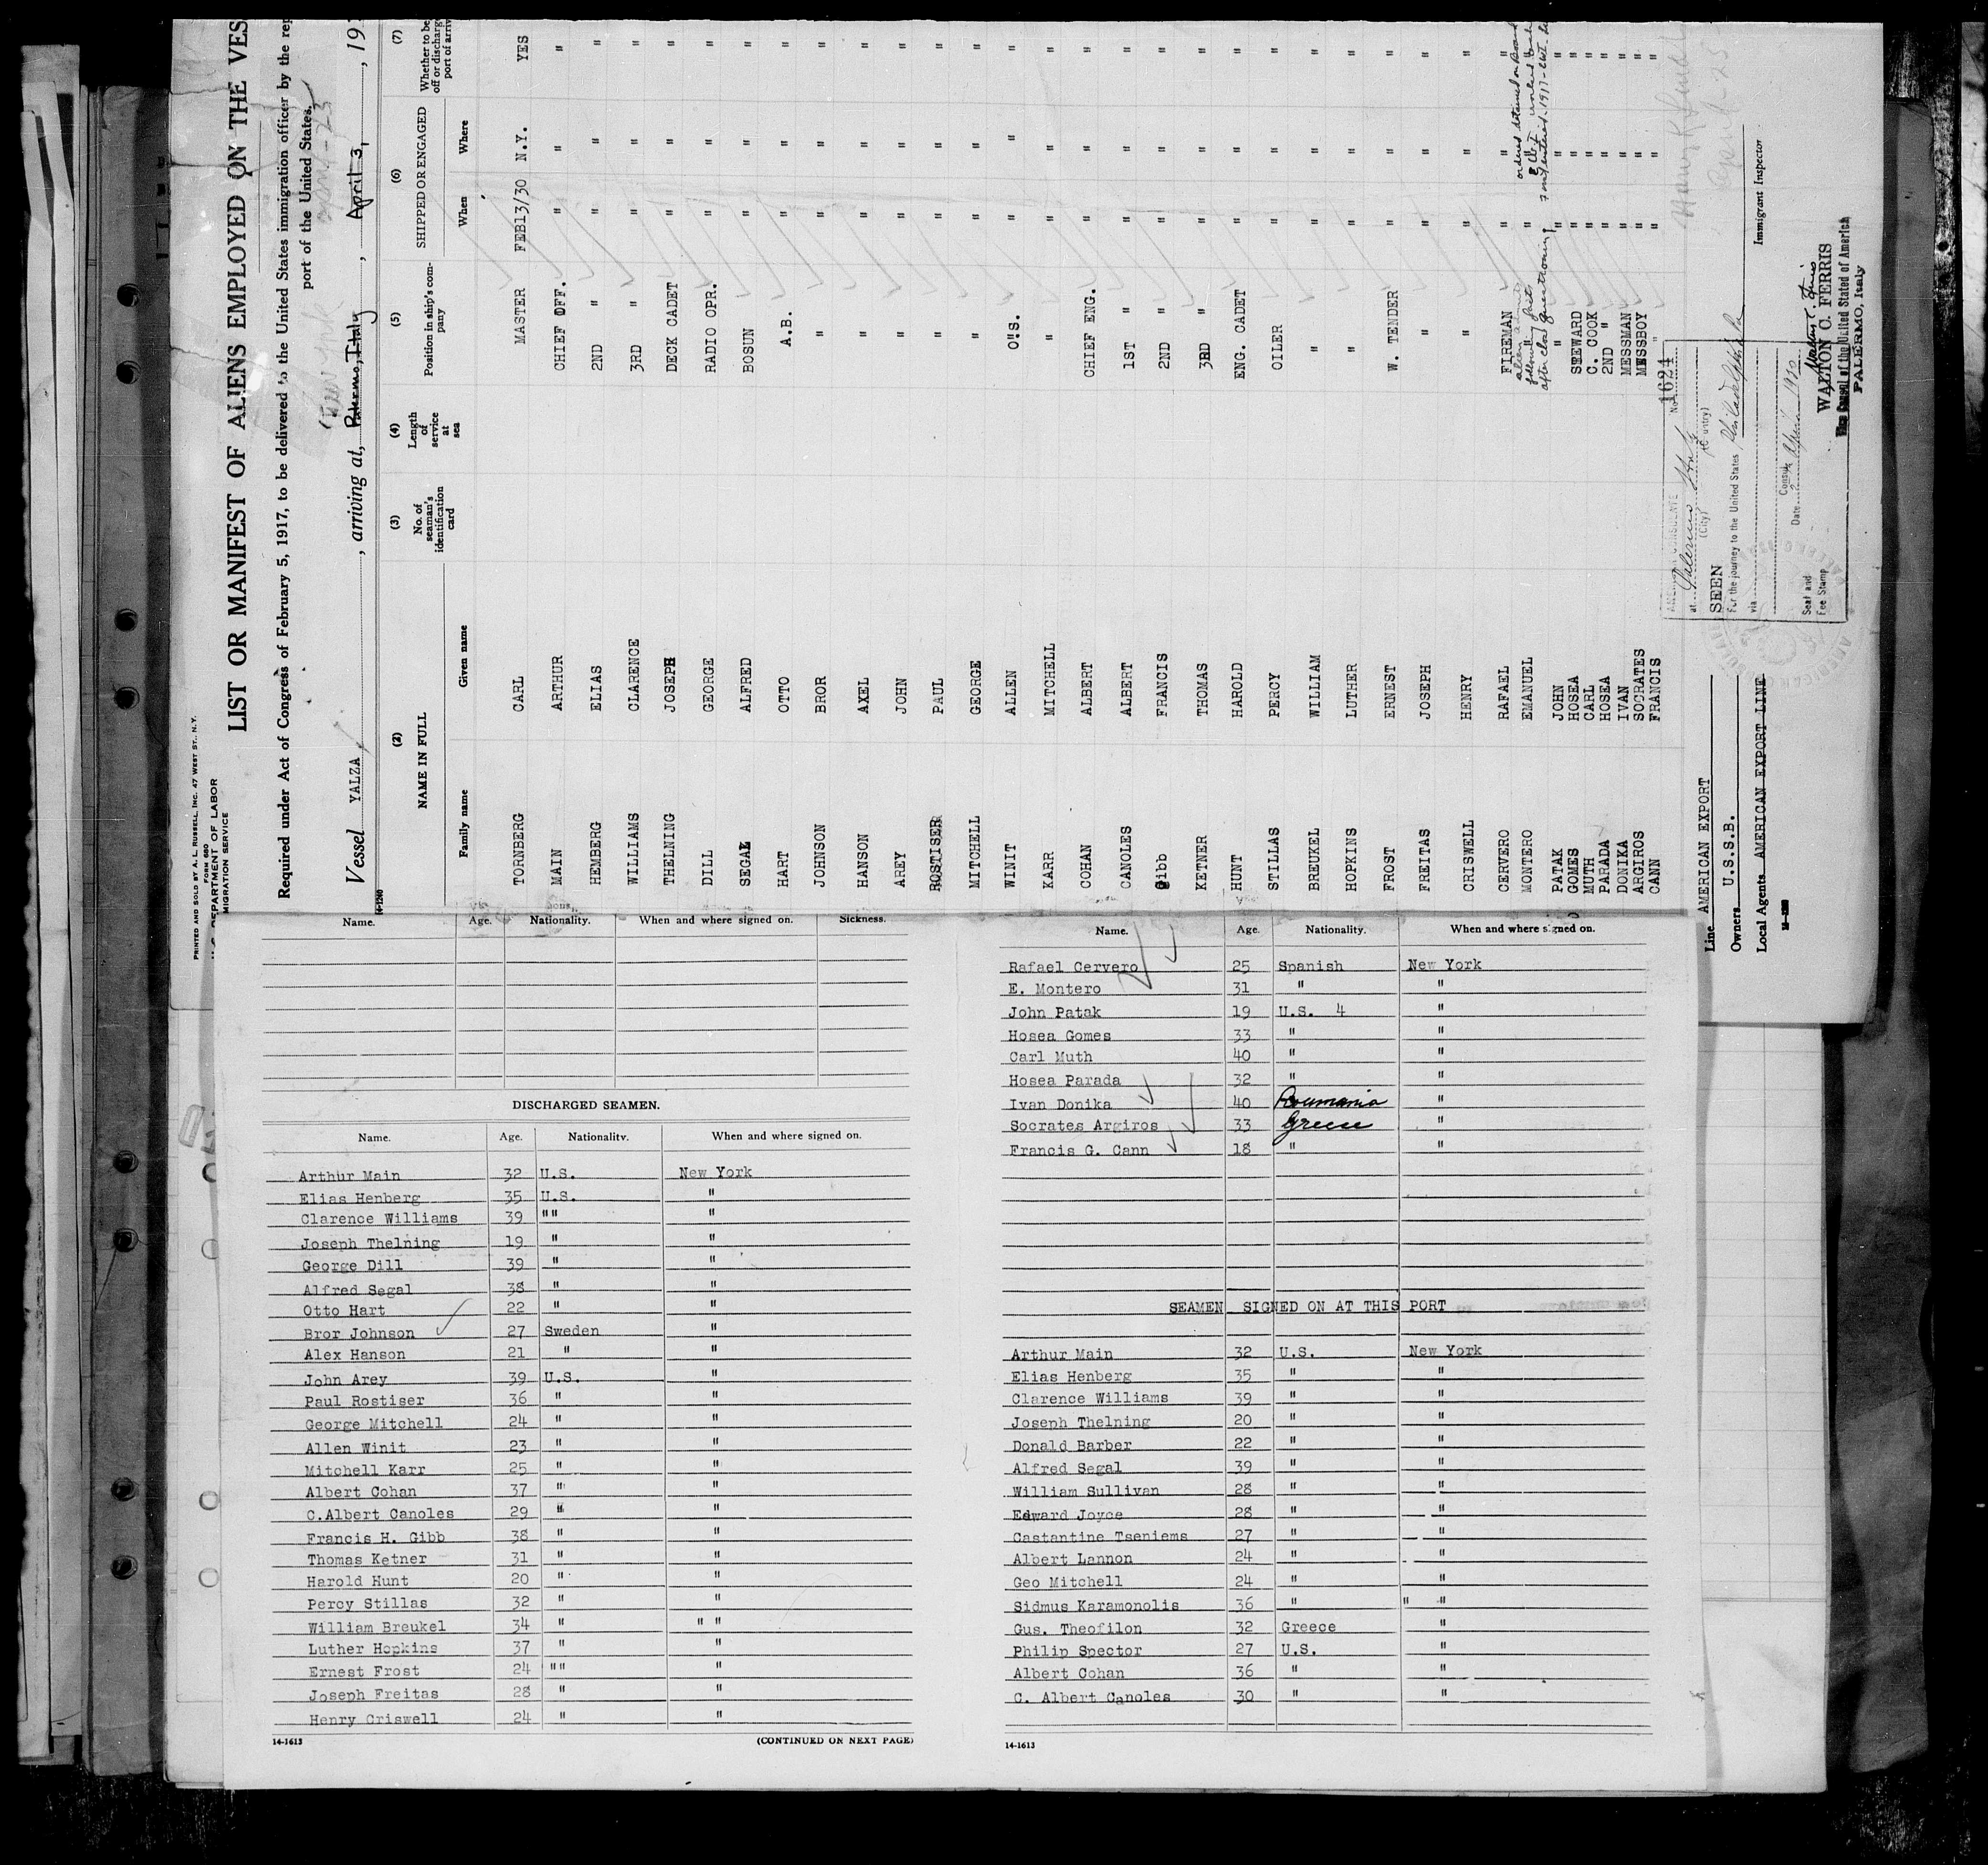 PRINTED AND SOLD BY A. L. RUSSELL, INC. 47 WEST ST., N.Y.
FORM 680
DEPARTMENT OF LABOR
MIGRATION SERVICE
LIST OR MANIFEST OF ALIENS EMPLOYED ON THE VES
Required under Act of Congress of February 5, 1917, to be delivered to the United States immigration officer by the rep
port of the United States.
Vessel YALZA, arriving at, Palermo, Italy, April 3, 19
14-1240
(2) (3) (4) (5) (6) (7)
NAME IN FULL No. of seaman's identification card Length of service at sea Position in ship's company SHIPPED OR ENGAGED Whether to be
off or discharg
port of arriv
Family name Given name When Where
TORNBERG CARL MASTER FEB13/30 N.Y. YES
MAIN ARTHUR CHIEF OFF. " " "
HEMBERG ELIAS 2ND " " " "
WILLIAMS CLARENCE 3RD " " " "
THELNING JOSEPH DECK CADET " " "
DILL GEORGE RADIO OPR. " " "
SEGAL ALFRED BOSUN " " "
HART OTTO A.B. " " "
JOHNSON BROR " " " "
HANSON AXEL " " " "
AREY JOHN " " " "
ROSTISER PAUL " " " "
MITCHELL GEORGE " " " "
WINIT ALLEN O.S. " " "
KARR MITCHELL " " " "
COHAN ALBERT CHIEF ENG. " " "
CANOLES ALBERT 1ST " " " "
Gibb FRANCIS 2ND " " " "
KETNER THOMAS 3RD " " " "
HUNT HAROLD ENG. CADET " " "
STILLAS PERCY OILER " " "
BREUKEL WILLIAM " " " "
HOPKINS LUTHER " " " "
FROST ERNEST W. TENDER " " "
FREITAS JOSEPH " " " "
CRISWELL HENRY " " " "
CERVERO RAFAEL FIREMAN " " "
MONTERO EMANUEL " " " "
after close questioning
PATAK JOHN " " " "
GOMES HOSEA STEWARD " " "
MUTH CARL C. COOK " " "
PARADA HOSEA 2ND " " " "
DONIKA IVAN MESSMAN " " "
ARGIROS SOCRATES MESSBOY " " "
CANN FRANCIS " " " "
Line AMERICAN EXPORT
Owners U.S.S.B.
Local Agents AMERICAN EXPORT LINE
Immigrant Inspector
No. 1624
AMERICAN CONSULATE
at Palermo Italy
(City) (Country)
SEEN
For the journey to the United States Philadelphia
via
Consul
Date April 1930
Seal and
Fee Stamp
WALTON C. FERRIS
Vice Consul of the United States of America
PALERMO, Italy
Name. Age. Nationality. When and where signed on. Sickness.
DISCHARGED SEAMEN.
Name. Age. Nationality. When and where signed on.
Arthur Main 32 U.S. New York
Elias Henberg 35 U.S. "
Clarence Williams 39 "" "
Joseph Thelning 19 " "
George Dill 39 " "
Alfred Segal 38 " "
Otto Hart 22 " "
Bror Johnson 27 Sweden "
Alex Hanson 21 " "
John Arey 39 U.S. "
Paul Rostiser 36 " "
George Mitchell 24 " "
Allen Winit 23 " "
Mitchell Karr 25 " "
Albert Cohan 37 " "
C.Albert Canoles 29 " "
Francis H. Gibb 38 " "
Thomas Ketner 31 " "
Harold Hunt 20 " "
Percy Stillas 32 " "
William Breukel 34 " " "
Luther Hopkins 37 " "
Ernest Frost 24 "" "
Joseph Freitas 28 " "
Henry Criswell 24 " "
14-1613 (CONTINUED ON NEXT PAGE)
Name. Age. Nationality. When and where signed on.
Rafael Cervero 25 Spanish New York
E. Montero 31 " "
John Patak 19 U.S. 4 "
Hosea Gomes 33 " "
Carl Muth 40 " "
Hosea Parada 32 " "
Ivan Donika 40 Roumania "
Socrates Argiros 33 Greece "
Francis G. Cann 18 " "
SEAMEN SIGNED ON AT THIS PORT
Arthur Main 32 U.S. New York
Elias Henberg 35 " "
Clarence Williams 39 " "
Joseph Thelning 20 " "
Donald Barber 22 " "
Alfred Segal 39 " "
William Sullivan 28 " "
Edward Joyce 28 " "
Castantine Tseniems 27 " "
Albert Lannon 24 " "
Geo Mitchell 24 " "
Sidmus Karamonolis 36 " " "
Gus. Theofilon 32 Greece "
Philip Spector 27 U.S. "
Albert Cohan 36 " "
C. Albert Canoles 30 " "
14-1613